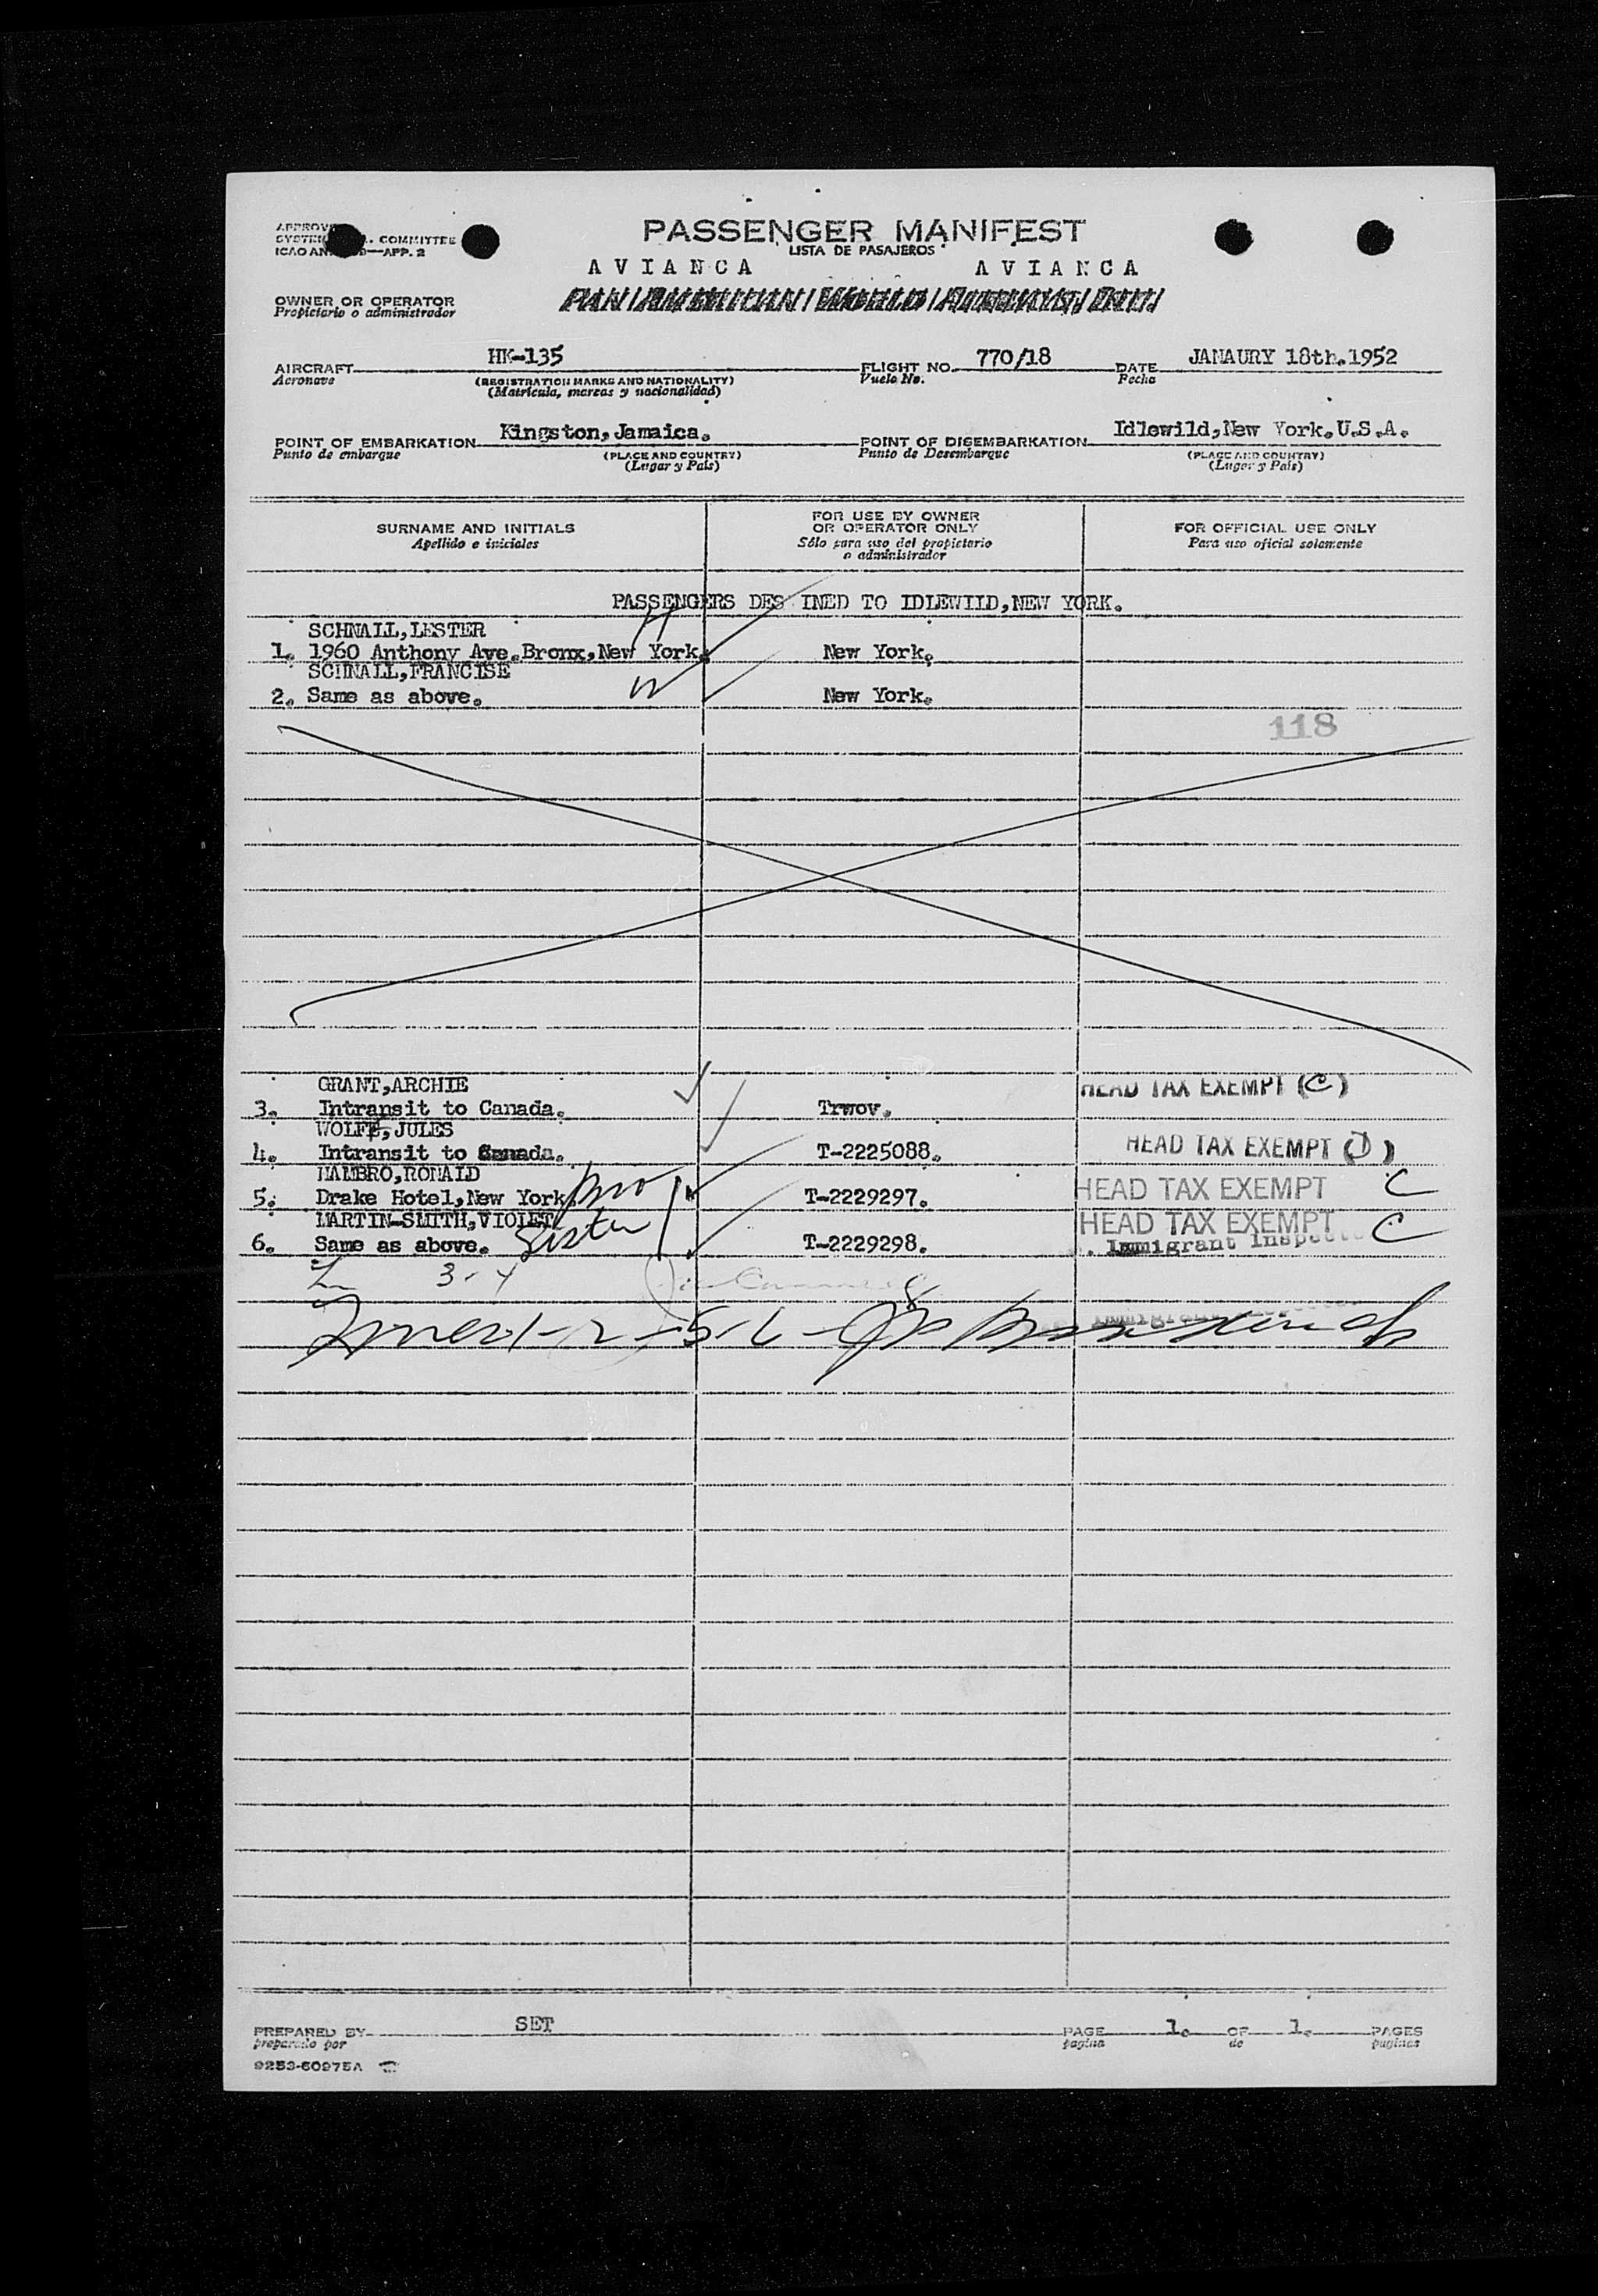 PASSENGER MANIFEST
LISTA DE PASAJEROS
COMMITTEE
APP. 2
AVIANCA AVIANCA
OWNER OR OPERATOR
Propietario o administrador
AIRCRAFT HK-135 FLIGHT NO. 770/18 DATE JANAURY 18th.1952
Aeronave (REGISTRATION MARKS AND NATIONALITY) Vuelo No. Fecha
(Matricula, marcas y nacionalidad)
POINT OF EMBARKATION Kingston,Jamaica. POINT OF DISEMBARKATION Idlewild,New York.U.S.A.
Punto de embarque (PLACE AND COUNTRY) Punto de Desembarque (PLACE AND COUNTRY)
(Lugar y País) (Lugar y País)
SURNAME AND INITIALS FOR USE BY OWNER OR OPERATOR ONLY FOR OFFICIAL USE ONLY
Apellido e iniciales Sólo para uso del propietario o administrador Para uso oficial solamente
PASSENGERS DES INED TO IDLEWILD,NEW YORK.
SCHNALL,LESTER
1. 1960 Anthony Ave.Bronx,New York. New York.
SCHNALL,FRANCISE
2. Same as above. New York.
118
GRANT,ARCHIE HEAD TAX EXEMPT (C)
3. Intransit to Canada. Trwov.
WOLFE,JULES
4. Intransit to Canada. T-2225088. HEAD TAX EXEMPT
HAMBRO,RONALD
5. Drake Hotel,New York Bro T-2229297. HEAD TAX EXEMPT C
MARTIN-SMITH,VIOLET HEAD TAX EXEMPT C
6. Same as above. Sister T-2229298. Immigrant Inspector
3-4
1-2-5-6
PREPARED BY SET PAGE 1. OF 1. PAGES
preparado por pagina de paginas
9253-60975A